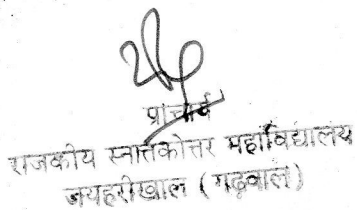 प्राचार्य
राजकीय स्नातकोत्तर महाविद्यालय
जयहरीखाल (गढ़वाल)